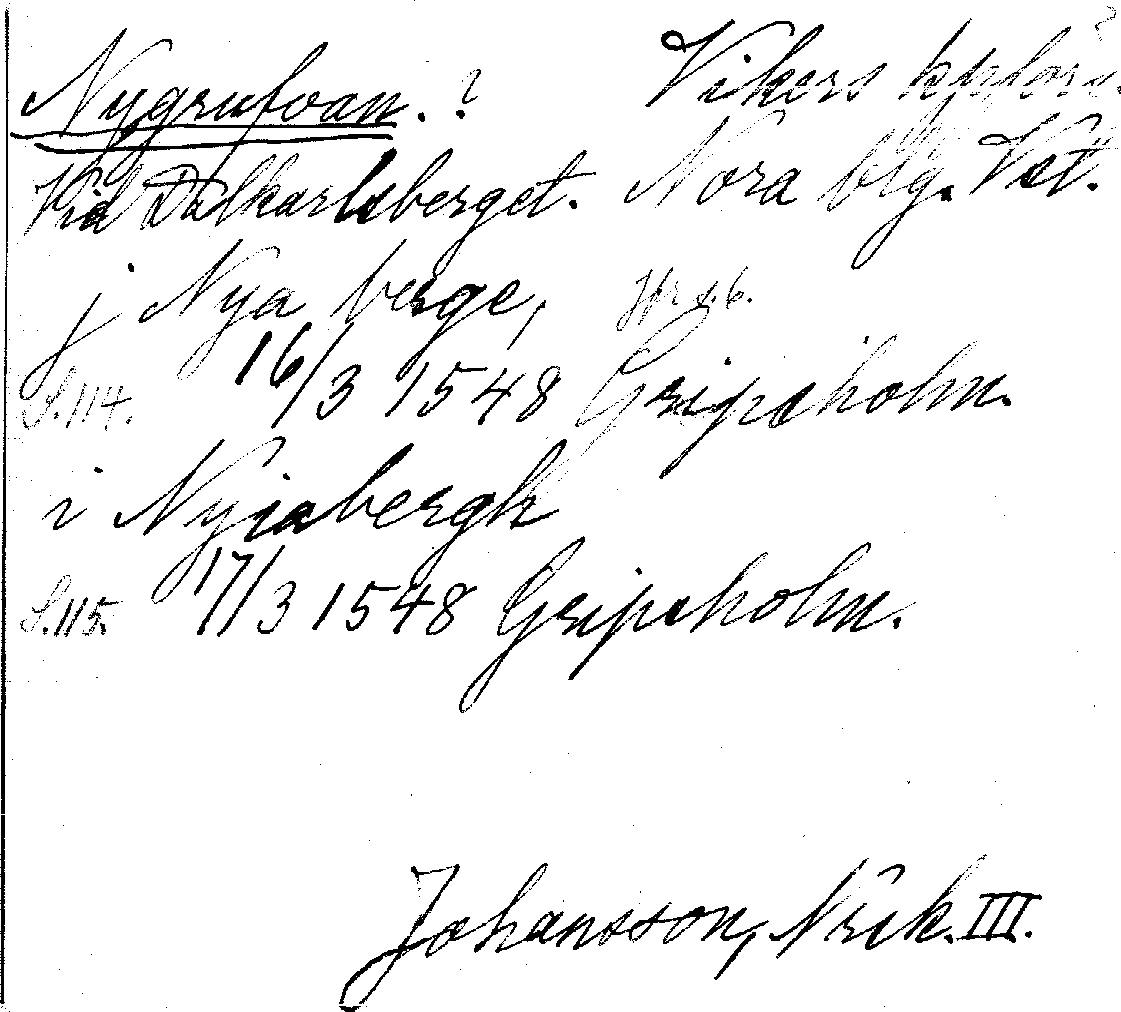 Nygrufvan. ? Vikers kplförs.
Vid Dalkarlsberget. Nora blg. Vst.
j Nya berge,
S. 114. 16/3 1548 Gripsholm.
i Nyiabergh
S. 115. 17/3 1548 Gripsholm.
Johansson, Nrik. III.